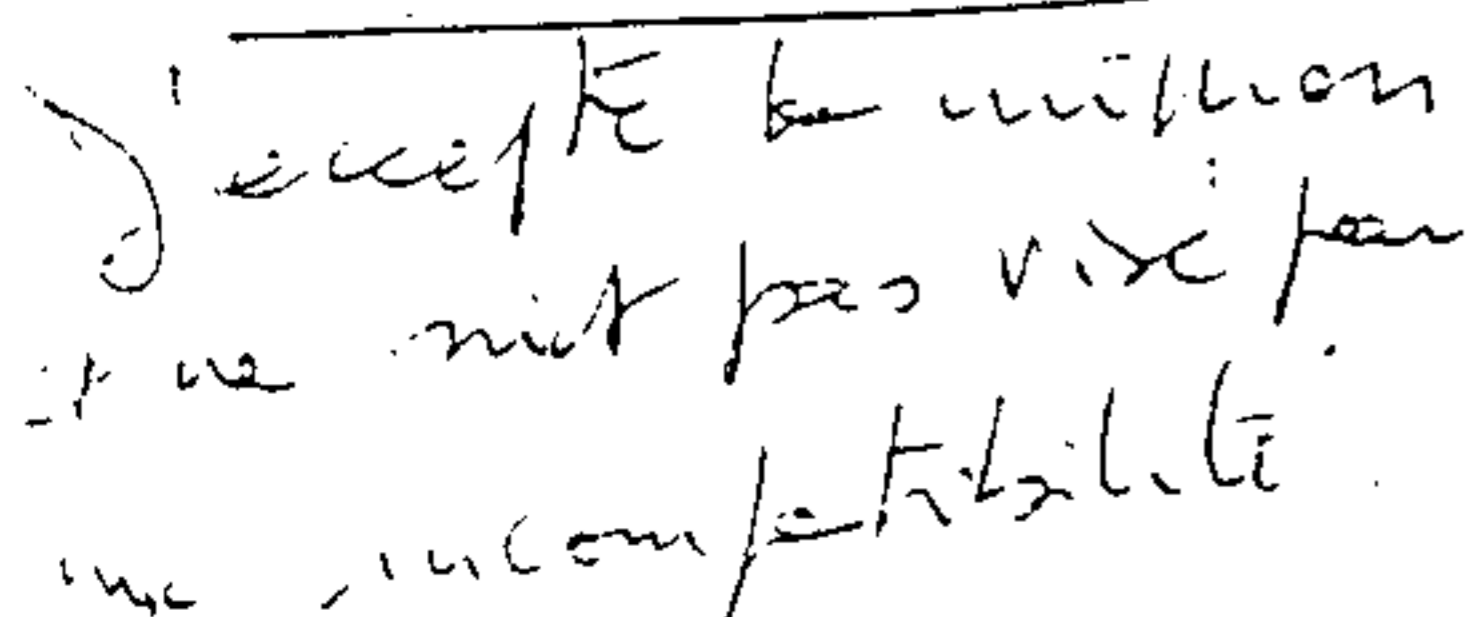 J'accepte la mission
et ne suis pas visé par
une incompatibilité.